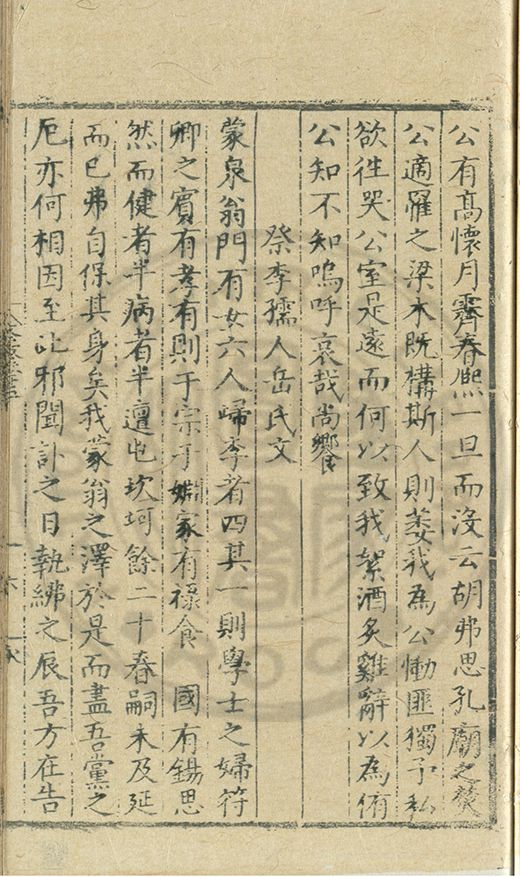 公有高懷月霽春熙一旦而沒云胡弗思孔廟之燬
公適罹之梁木既構斯人則萎我為公慟匪獨予私
欲徃哭公室是遠而何以致我絮酒炙雞辭以為侑
公知不知嗚呼哀哉尚饗
祭李孺人岳氏文
蒙泉翁門有女六人歸李者四其一則學士之婦符
卿之賓有孝有則于宗于嫻家有祿食 國有錫恩
然而健者半病者半邅屯坎坷餘二十春嗣未及延
而已弗自保其身矣我蒙翁之澤於是而盡吾黨之
厄亦何相因至此邪聞訃之日執紼之辰吾方在告